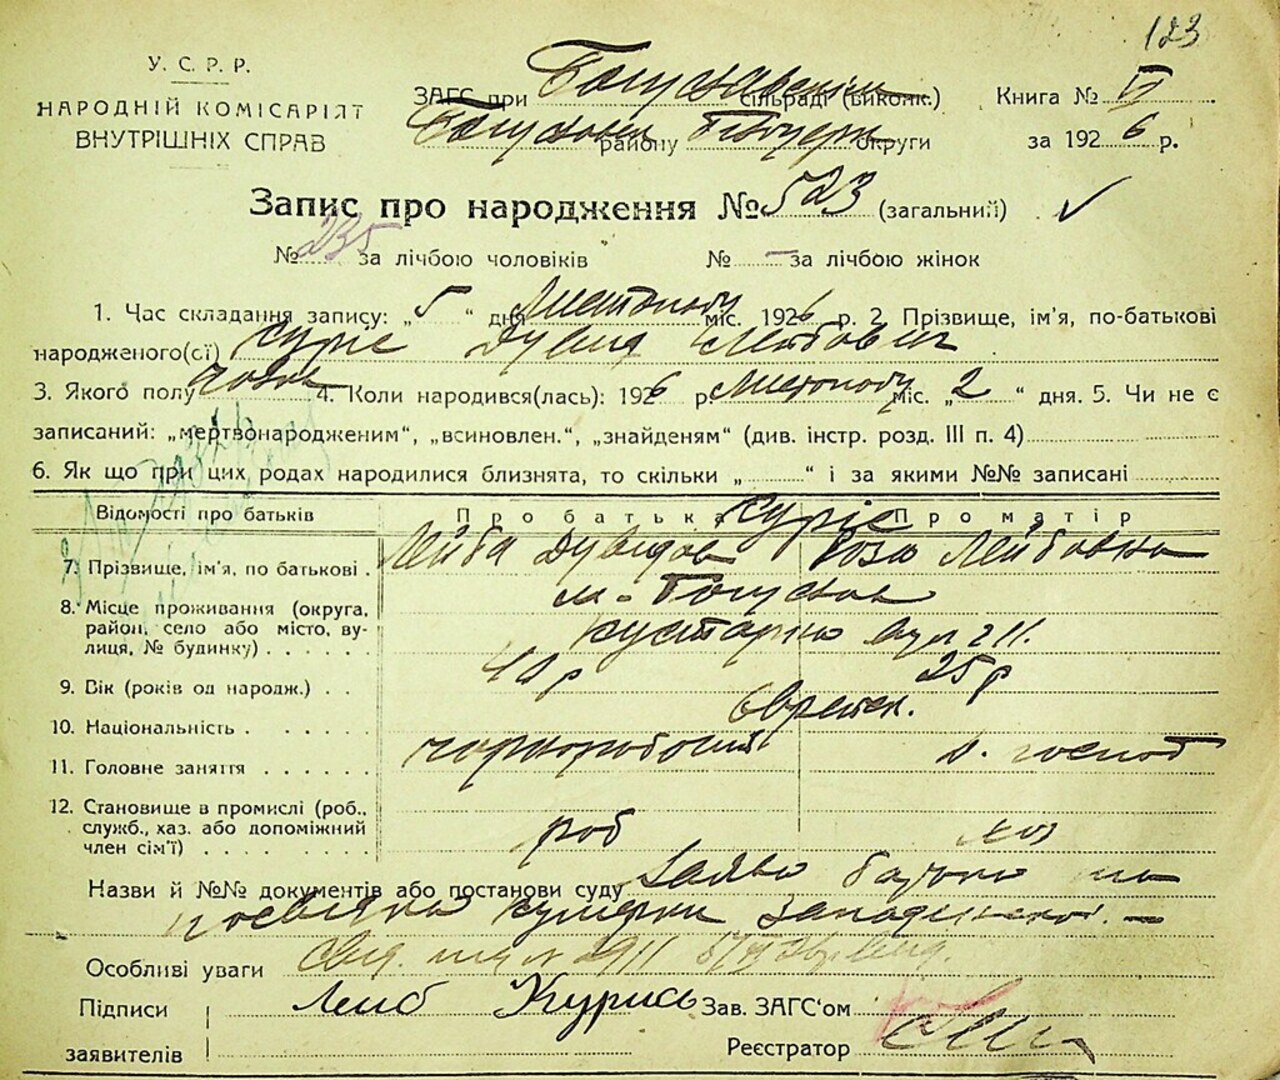 123
У. С. Р. Р.
НАРОДНІЙ КОМІСАРІЯТ
ВНУТРІШНІХ СПРАВ
ЗАГС при Богуславськім сільраді (виконк.)
Книга № VI
району округи
за 1926 р.
Запис про народження № 523 (загальний) ✓
№ 235 за лічбою чоловіків № — за лічбою жінок
1. Час складання запису: „5“ дня Листопаду міс. 1926 р. 2 Прізвище, ім'я, по-батькові
народженого(сї) Куріс Дувид Лейбович
3. Якого полу чолов 4. Коли народився(лась): 1926 р. Листопаду міс. „2“ дня. 5. Чи не є
записаний: „мертвонародженим“, „всиновлен.“, „знайденям“ (див. інстр. розд. III п. 4)
6. Як що при цих родах народилися близнята, то скільки „ “ і за якими №№ записані
Відомості про батьків Про батька Про матір
Куріс
7. Прізвище, ім'я, по батькові . Лейба Дувидов Роза Лейбовна
8. Місце проживання (округа, м. Богуслав
район, село або місто, ву-
лиця, № будинку) . . . . . . вул 211.
9. Вік (років од народж.) . . 40 р 25 р
10. Національність . . . . . . Єврейск.
11. Головне заняття . . . . . . чорноробочий д. господ
12. Становище в промислі (роб.,
служб., хаз. або допоміжний роб
член сім'ї) . . . . . .
Назви й №№ документів або постанови суду Заява батька та
Особливі уваги
Підписи Лейб Курись Зав. ЗАГС'ом
заявителів Реєстратор